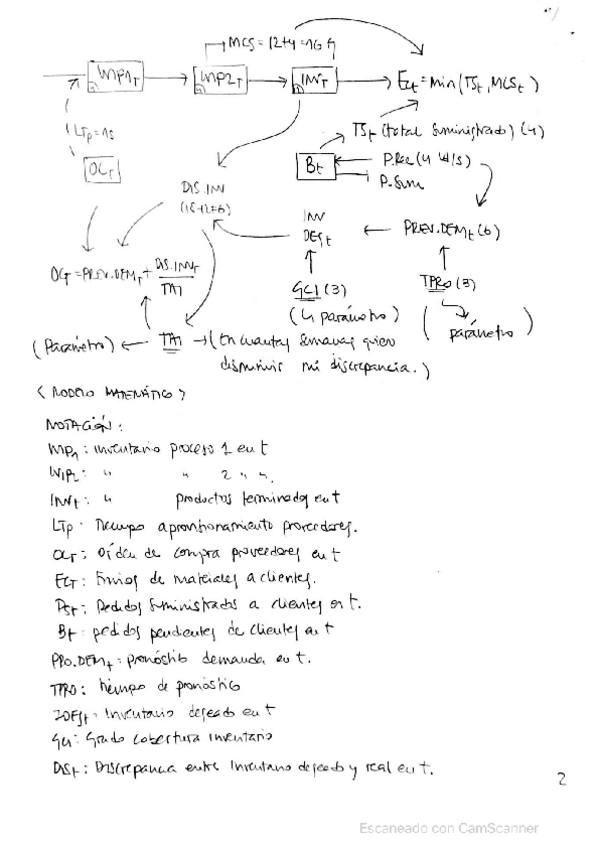 MCS = 12+4 = 16
WIP1T
WIP2T
INVT
ECt = Min(TSt, MCSt)
LTp = 1s
OCT
TSt (total suministrado) (4)
Bt
P.Rec (4 ud/s)
P.Sum
DIS.INV
INV
DESt
PREV.DEMt (6)
OCT = PREV.DEMT + DIS.INVT
TAI
GCI (3)
(4 parámetro)
TPRO (3)
(parámetro)
(Parámetro)
TAI
(En cuantas semanas quiero
disminuir mi discrepancia.)
< MODELO MATEMÁTICO >
NOTACIÓN:
WIP1: inventario proceso 1 en t
WIP2: " " 2 " ".
INVt: " productos terminados en t
LTp: Tiempo aprovisionamiento proveedores.
OCT: Orden de compra proveedores en t
ECT: Envíos de materiales a clientes.
PSt: Pedidos suministrados a clientes en t.
Bt: pedidos pendientes de clientes en t
PRO.DEMt: pronóstico demanda en t.
TPRO: tiempo de pronóstico
IDESt: Inventario deseado en t
GCI: Grado cobertura inventario
DISt: Discrepancia entre Inventario deseado y real en t.
2
Escaneado con CamScanner